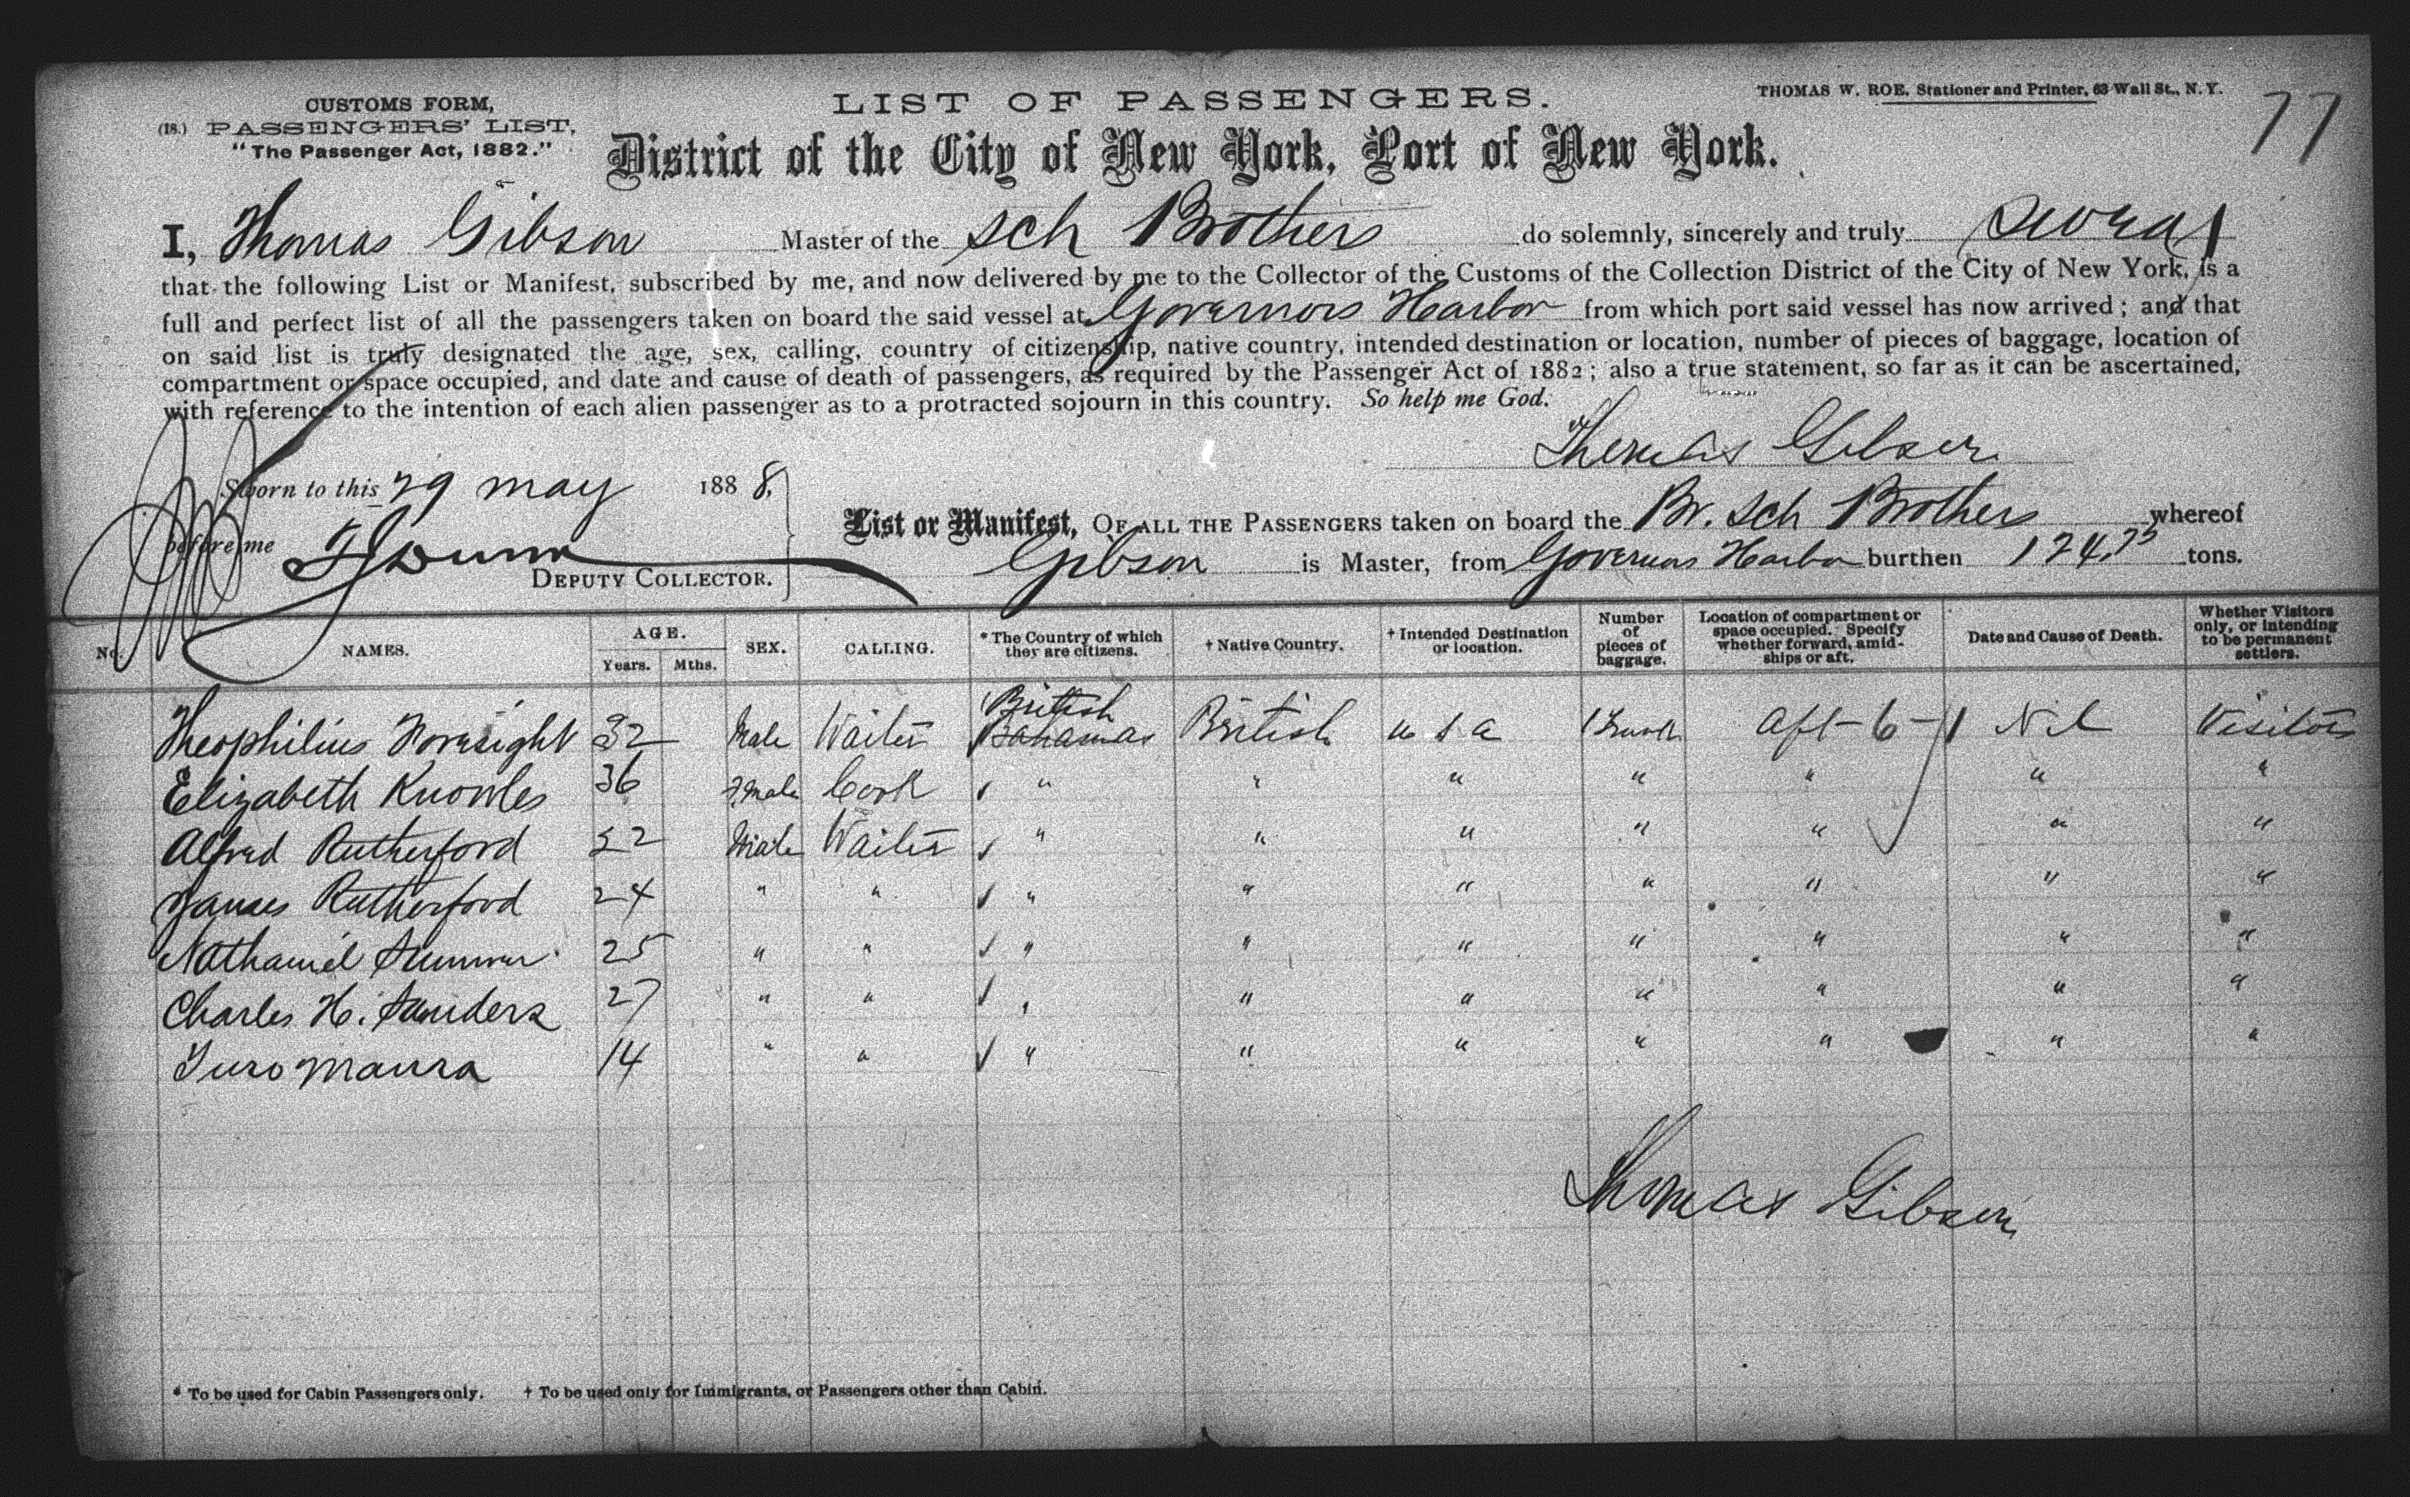 CUSTOMS FORM,
(18.) PASSENGERS' LIST,
"The Passenger Act, 1882."
LIST OF PASSENGERS.
THOMAS W. ROE, Stationer and Printer, 63 Wall St., N. Y.
77
District of the City of New York, Port of New York.
I, Thomas Gibson Master of the Sch Brothers do solemnly, sincerely and truly Swear
that the following List or Manifest, subscribed by me, and now delivered by me to the Collector of the Customs of the Collection District of the City of New York, is a
full and perfect list of all the passengers taken on board the said vessel at Governors Harbor from which port said vessel has now arrived; and that
on said list is truly designated the age, sex, calling, country of citizenship, native country, intended destination or location, number of pieces of baggage, location of
compartment or space occupied, and date and cause of death of passengers, as required by the Passenger Act of 1882; also a true statement, so far as it can be ascertained,
with reference to the intention of each alien passenger as to a protracted sojourn in this country. So help me God.
Thomas Gibson
Sworn to this 29 May 1888.
before me
DEPUTY COLLECTOR.
List or Manifest, OF ALL THE PASSENGERS taken on board the Br. Sch Brothers whereof
Gibson is Master, from Governors Harbor burthen 124.75 tons.
No. NAMES. AGE. Years. Mths. SEX. CALLING. * The Country of which they are citizens. † Native Country. † Intended Destination or location. Number of pieces of baggage. Location of compartment or space occupied. Specify whether forward, amidships or aft. Date and Cause of Death. Whether Visitors only, or intending to be permanent settlers.
Theophilius 32 Male Waiter British Bahamas British U S A 1 Trunk Aft - 6 - Nil Visitors
Elizabeth Knowles 36 Cook " " " " " " "
Alfred Rutherford Male Waiter " " " " " " "
James Rutherford 24 " " " " " " " " "
Nathaniel 25 " " " " " " " " "
Charles H. Sanders 27 " " " " " " " " "
Maura 14 " " " " " " " " "
Thomas Gibson
* To be used for Cabin Passengers only. † To be used only for Immigrants, or Passengers other than Cabin.